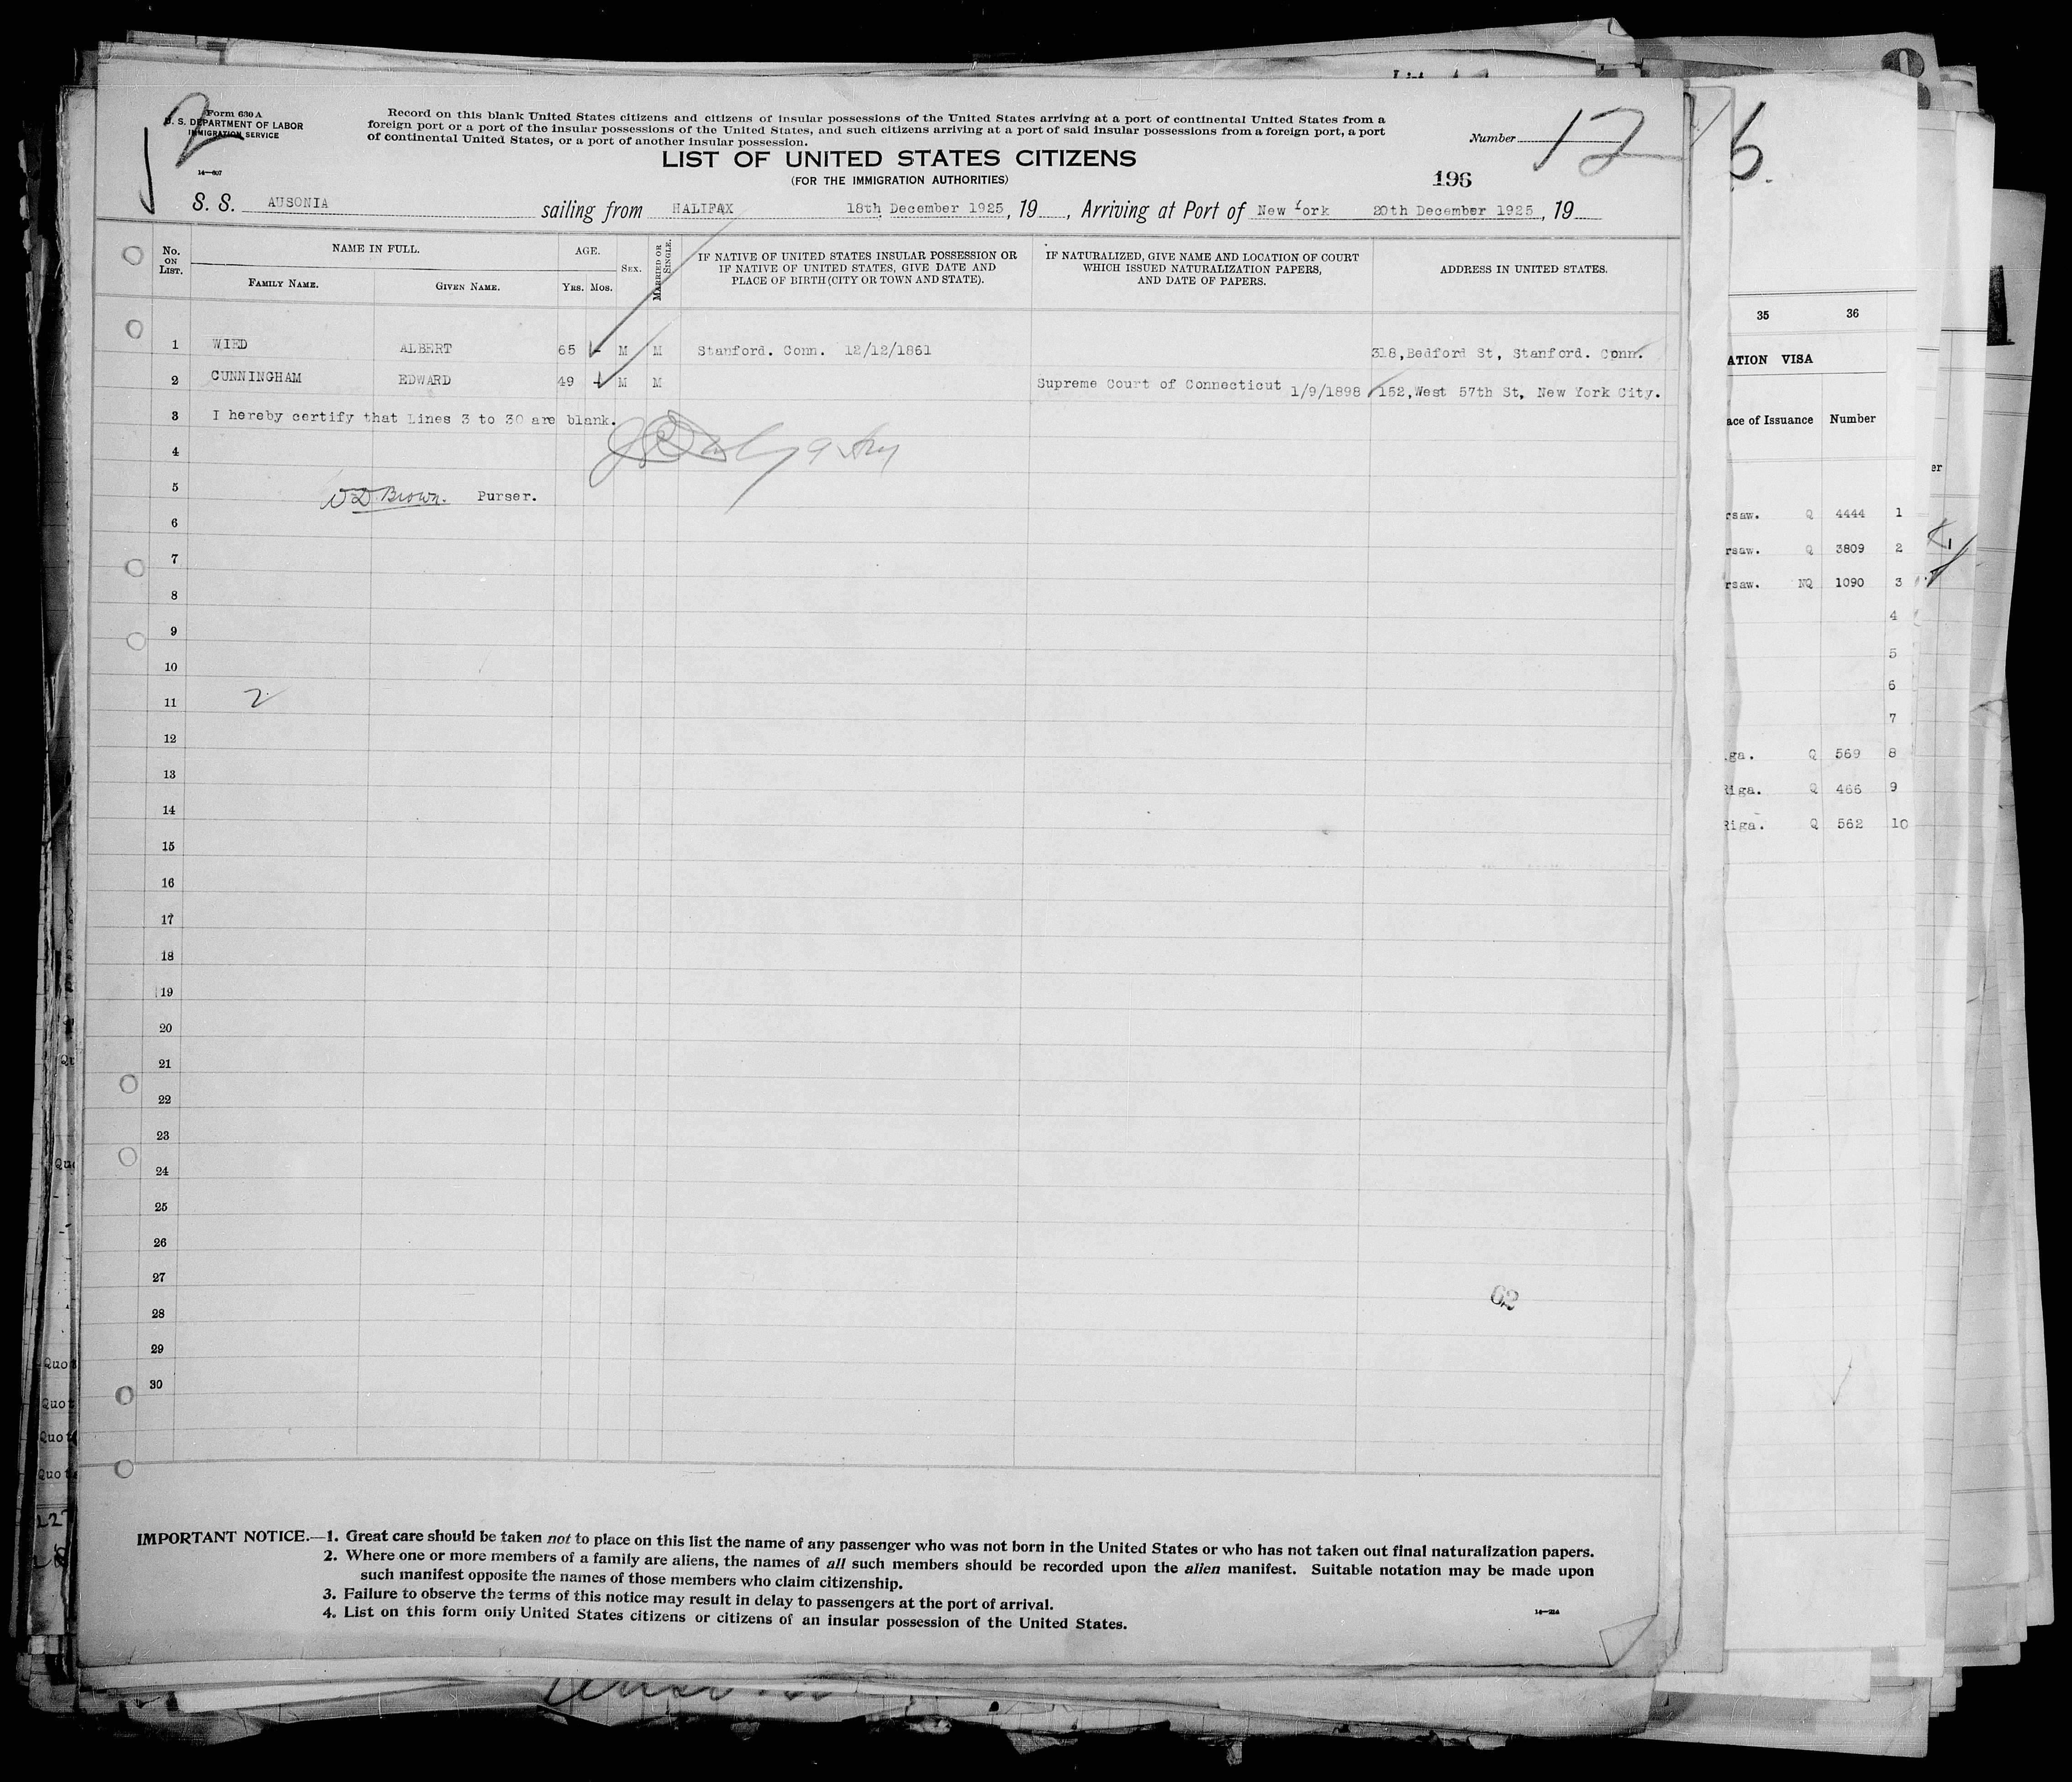 Form 630 A
U. S. DEPARTMENT OF LABOR
IMMIGRATION SERVICE
14—607
Record on this blank United States citizens and citizens of insular possessions of the United States arriving at a port of continental United States from a
foreign port or a port of the insular possessions of the United States, and such citizens arriving at a port of said insular possessions from a foreign port, a port
of continental United States, or a port of another insular possession.
Number 12
LIST OF UNITED STATES CITIZENS
(FOR THE IMMIGRATION AUTHORITIES)
196
S. S. AUSONIA sailing from HALIFAX 18th December 1925, 19 , Arriving at Port of New York 20th December 1925, 19
No. ON LIST.
NAME IN FULL.
FAMILY NAME. GIVEN NAME.
AGE.
YRS. MOS.
SEX.
MARRIED OR SINGLE.
IF NATIVE OF UNITED STATES INSULAR POSSESSION OR
IF NATIVE OF UNITED STATES, GIVE DATE AND
PLACE OF BIRTH (CITY OR TOWN AND STATE).
IF NATURALIZED, GIVE NAME AND LOCATION OF COURT
WHICH ISSUED NATURALIZATION PAPERS,
AND DATE OF PAPERS.
ADDRESS IN UNITED STATES.
1 WIED ALBERT 65 - M M Stanford. Conn. 12/12/1861 318,Bedford St, Stanford. Conn.
2 CUNNINGHAM EDWARD 49 - M M Supreme Court of Connecticut 1/9/1898 152,West 57th St, New York City.
3 I hereby certify that Lines 3 to 30 are blank.
4
5 W D Brown. Purser.
6
7
8
9
10
11 2
12
13
14
15
16
17
18
19
20
21
22
23
24
25
26
27
62
28
29
30
IMPORTANT NOTICE.—1. Great care should be taken not to place on this list the name of any passenger who was not born in the United States or who has not taken out final naturalization papers.
2. Where one or more members of a family are aliens, the names of all such members should be recorded upon the alien manifest. Suitable notation may be made upon
such manifest opposite the names of those members who claim citizenship.
3. Failure to observe the terms of this notice may result in delay to passengers at the port of arrival.
4. List on this form only United States citizens or citizens of an insular possession of the United States.
6.
35 36
ATION VISA
ace of Issuance Number
rsaw. Q 4444 1
rsaw. Q 3809 2
rsaw. NQ 1090 3
4
5
6
7
ga. Q 569 8
Riga. Q 466 9
Riga. Q 562 10
er
Quo
Quot
Quot
Quot